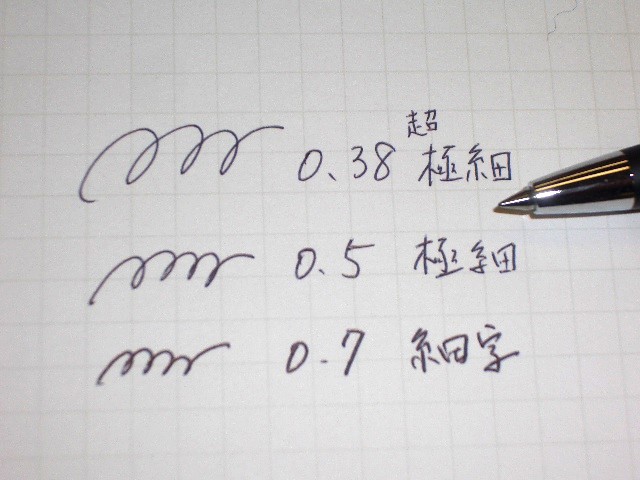 0.38 超極細
0.5 極細
0.7 細字